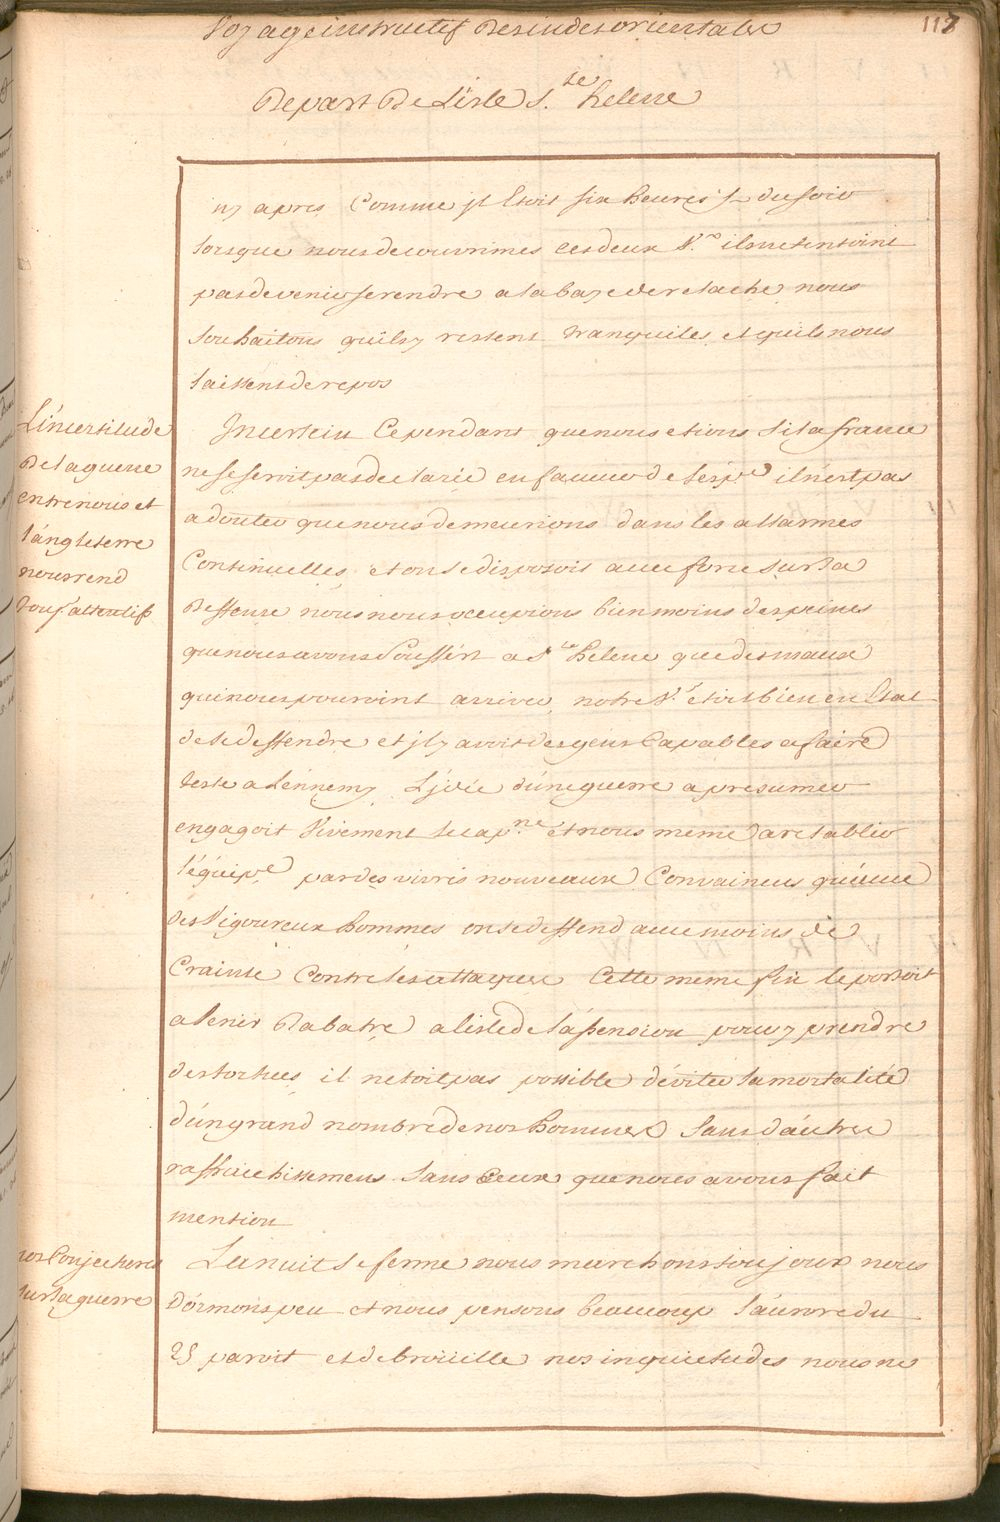 Voyage instructif Des indes orientales
117
Depart De L'isle S.te helene
ny apres Comme jl Etoit six heures ½ du soir
lorsque nous decouvrimes ces deux V.x ils ne tentoint
pas de venir se rendre a la baye de relache nous
souhaitons qu'ils y restent tranquiles et quils nous
laissent de repos
L'incertitude
De la guerre
entre nous et
l'angleterre
nous rend
tous attentifs
Incertein Cependant que nous etions si la france
ne se seroit pas declarée en faveur de l'esp.e il n'est pas
a douter que nous demeurions dans les allarmes
Continuelles et on se disposoit avec force sur la
Deffense nous nous occupions bien moins des peines
que nous avons Souffert a S.te helene que des maux
qui nous pouroint arriver, notre V.r etoit bien en Etat
de se deffendre et jl y avoit des gens Capables a faire
teste a L'ennemy L'jdée d'une guerre a presumer
engagoit Vivement le cap.ne et nous meme a retablir
l'équip.e par des vivres nouveaux Convaincus qu'avec
des Vigoureux hommes on se deffend avec moins de
Crainte Contre les attaques Cette meme fin le portoit
a tenir Rabatre a l'isle de l'assension pour y prendre
des tortues il n'etoit pas possible d'eviter la mortalité
d'un grand nombre de nos hommes Sans d'autres
raffraichissemens Sans Ceux que nous avons fait
mention
nos Conjectures
sur la guerre
La nuit se ferme nous marchons toujours nous
Dormons peu et nous pensons beaucoup l'aurore du
25 paroit et debroüille nos inquietudes nous ne